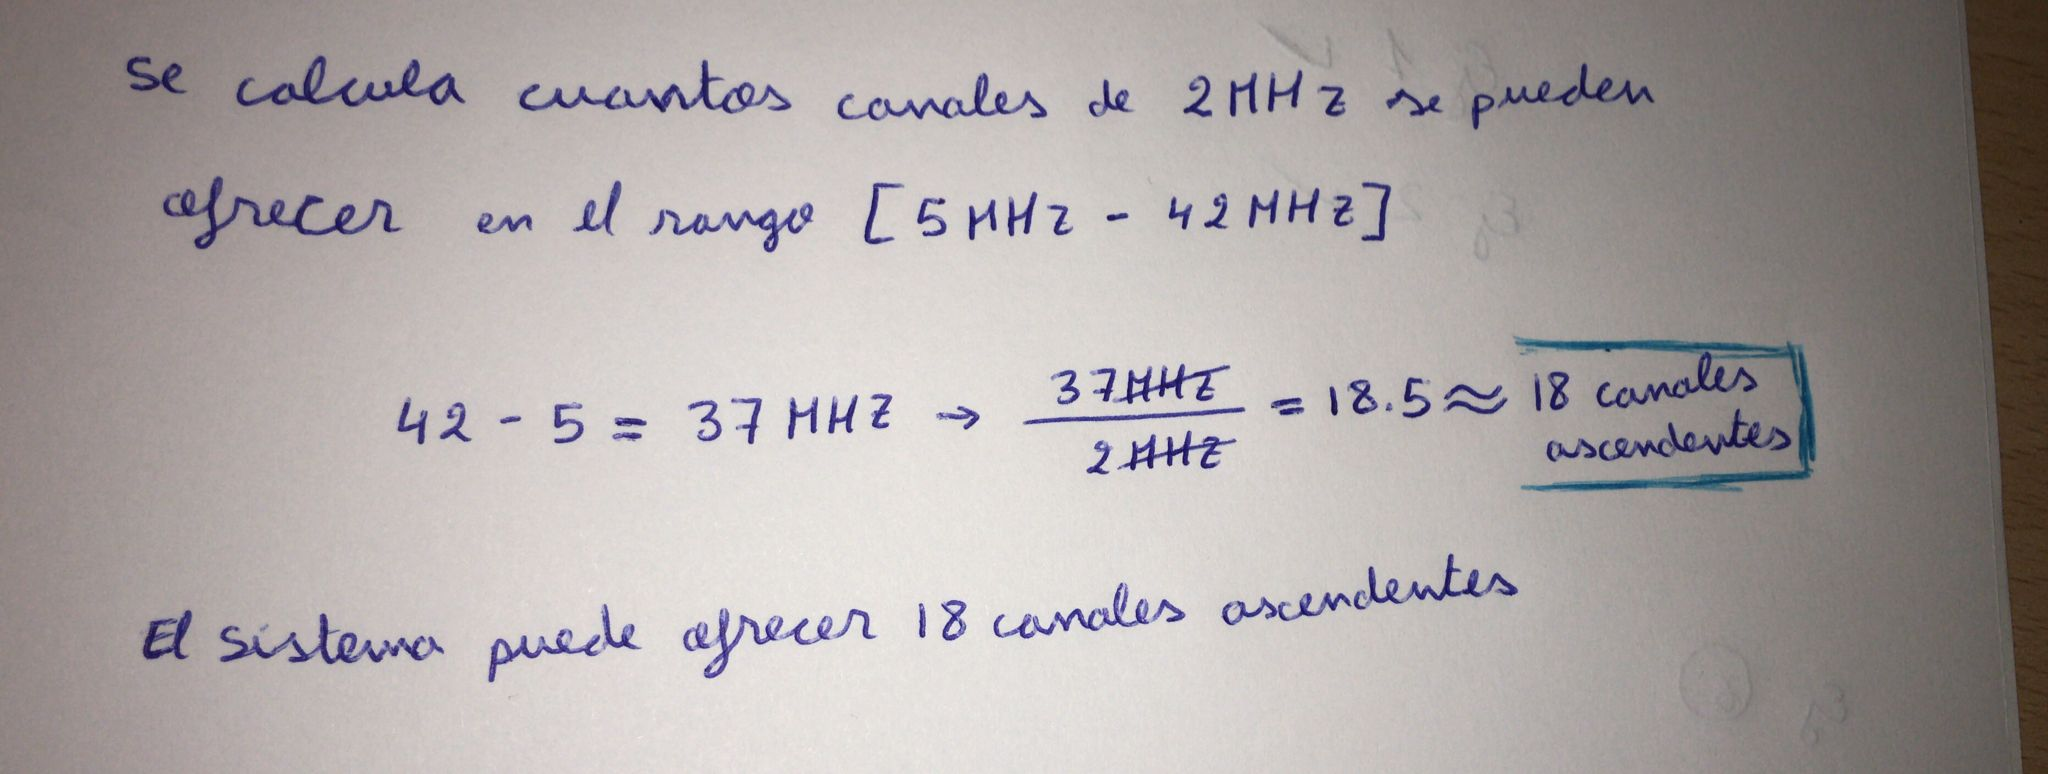 Se calcula cuantos canales de 2MHz se pueden
ofrecer en el rango [5MHz - 42MHz]
42 - 5 = 37 MHz → 37MHz / 2MHz = 18.5 ≈ 18 canales
ascendentes
El sistema puede ofrecer 18 canales ascendentes